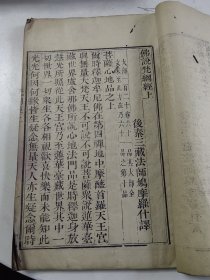 佛說梵網經上
後秦三藏法師鳩摩羅什譯
菩薩心地品之上
爾時釋迦牟尼佛在第四禪地中摩醯首羅天王宮
與無量大梵天王不可說不可說菩薩眾說蓮華臺
藏世界盧舍那佛所說心地法門品是時釋迦身放
慧光所照從此天王宮乃至蓮華臺藏世界其中一
切世界一切眾生各各相視歡喜快樂而未能知此
光光何因何緣皆生疑念無量天人亦生疑念爾時